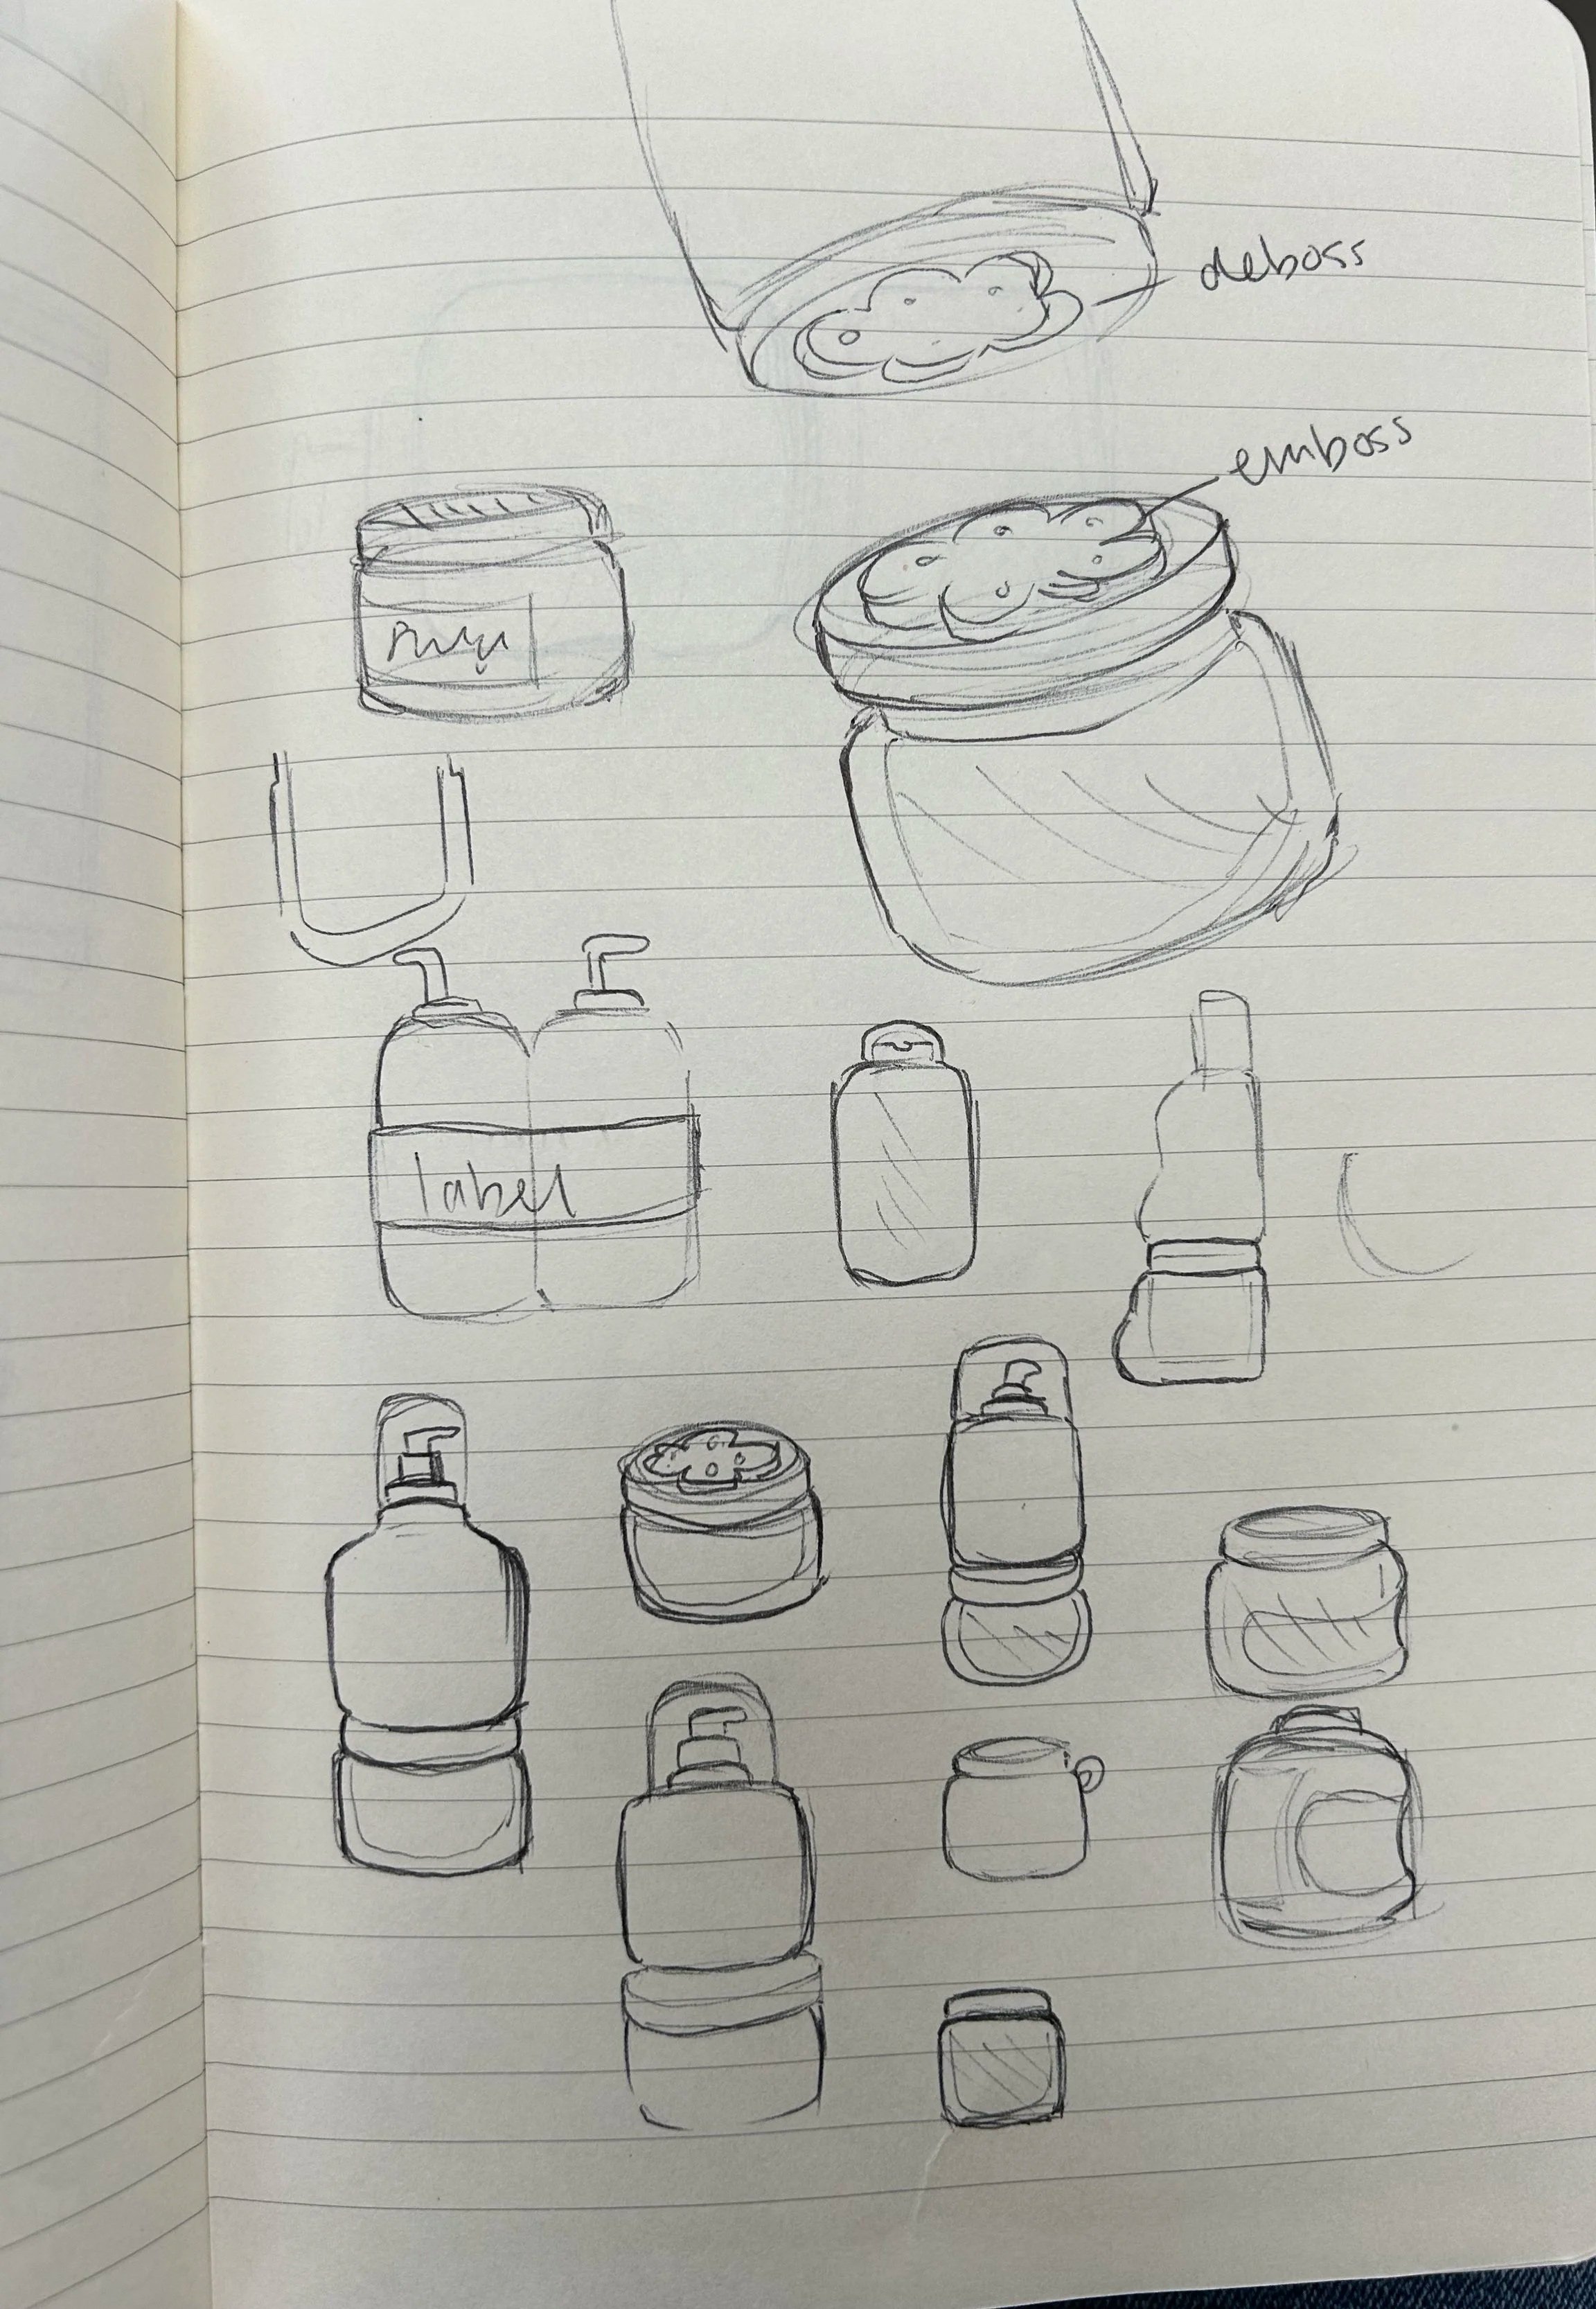 deboss
emboss
label